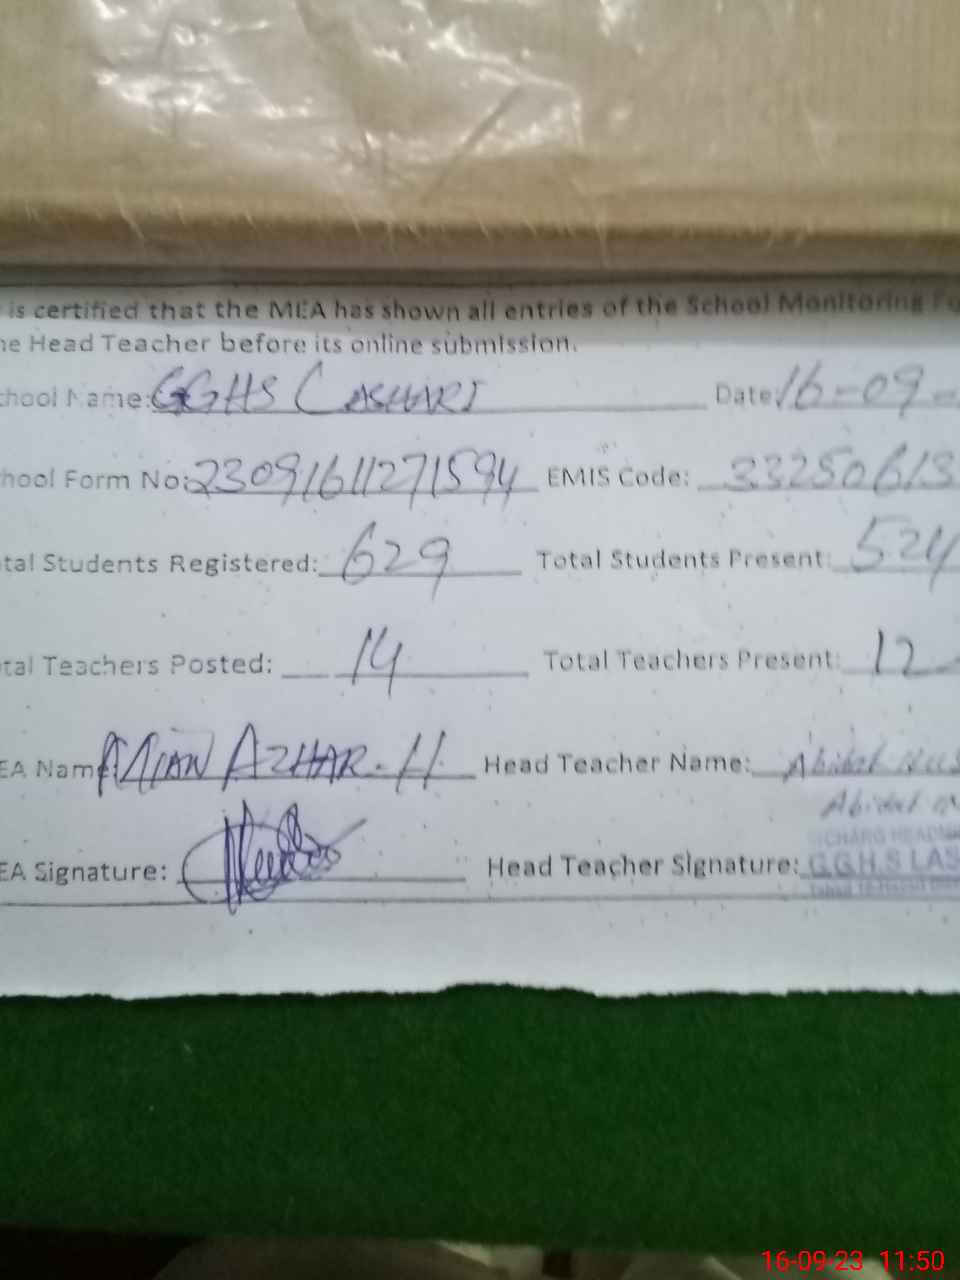 is certified that the MEA has shown all entries of the School Monitoring Fo
he Head Teacher before its online submission.
chool Name: GGHS LASHARI Date 16-09-
hool Form No: 23091611271594 EMIS Code: 33250613
tal Students Registered: 629 Total Students Present: 524
tal Teachers Posted: 14 Total Teachers Present: 12
EA Name: MIAN AZHAR. H Head Teacher Name: Abidat
Abidat
NCHARG HEADM
EA Signature: Head Teacher Signature: G.G.H.S LAS
16-09-23 11:50